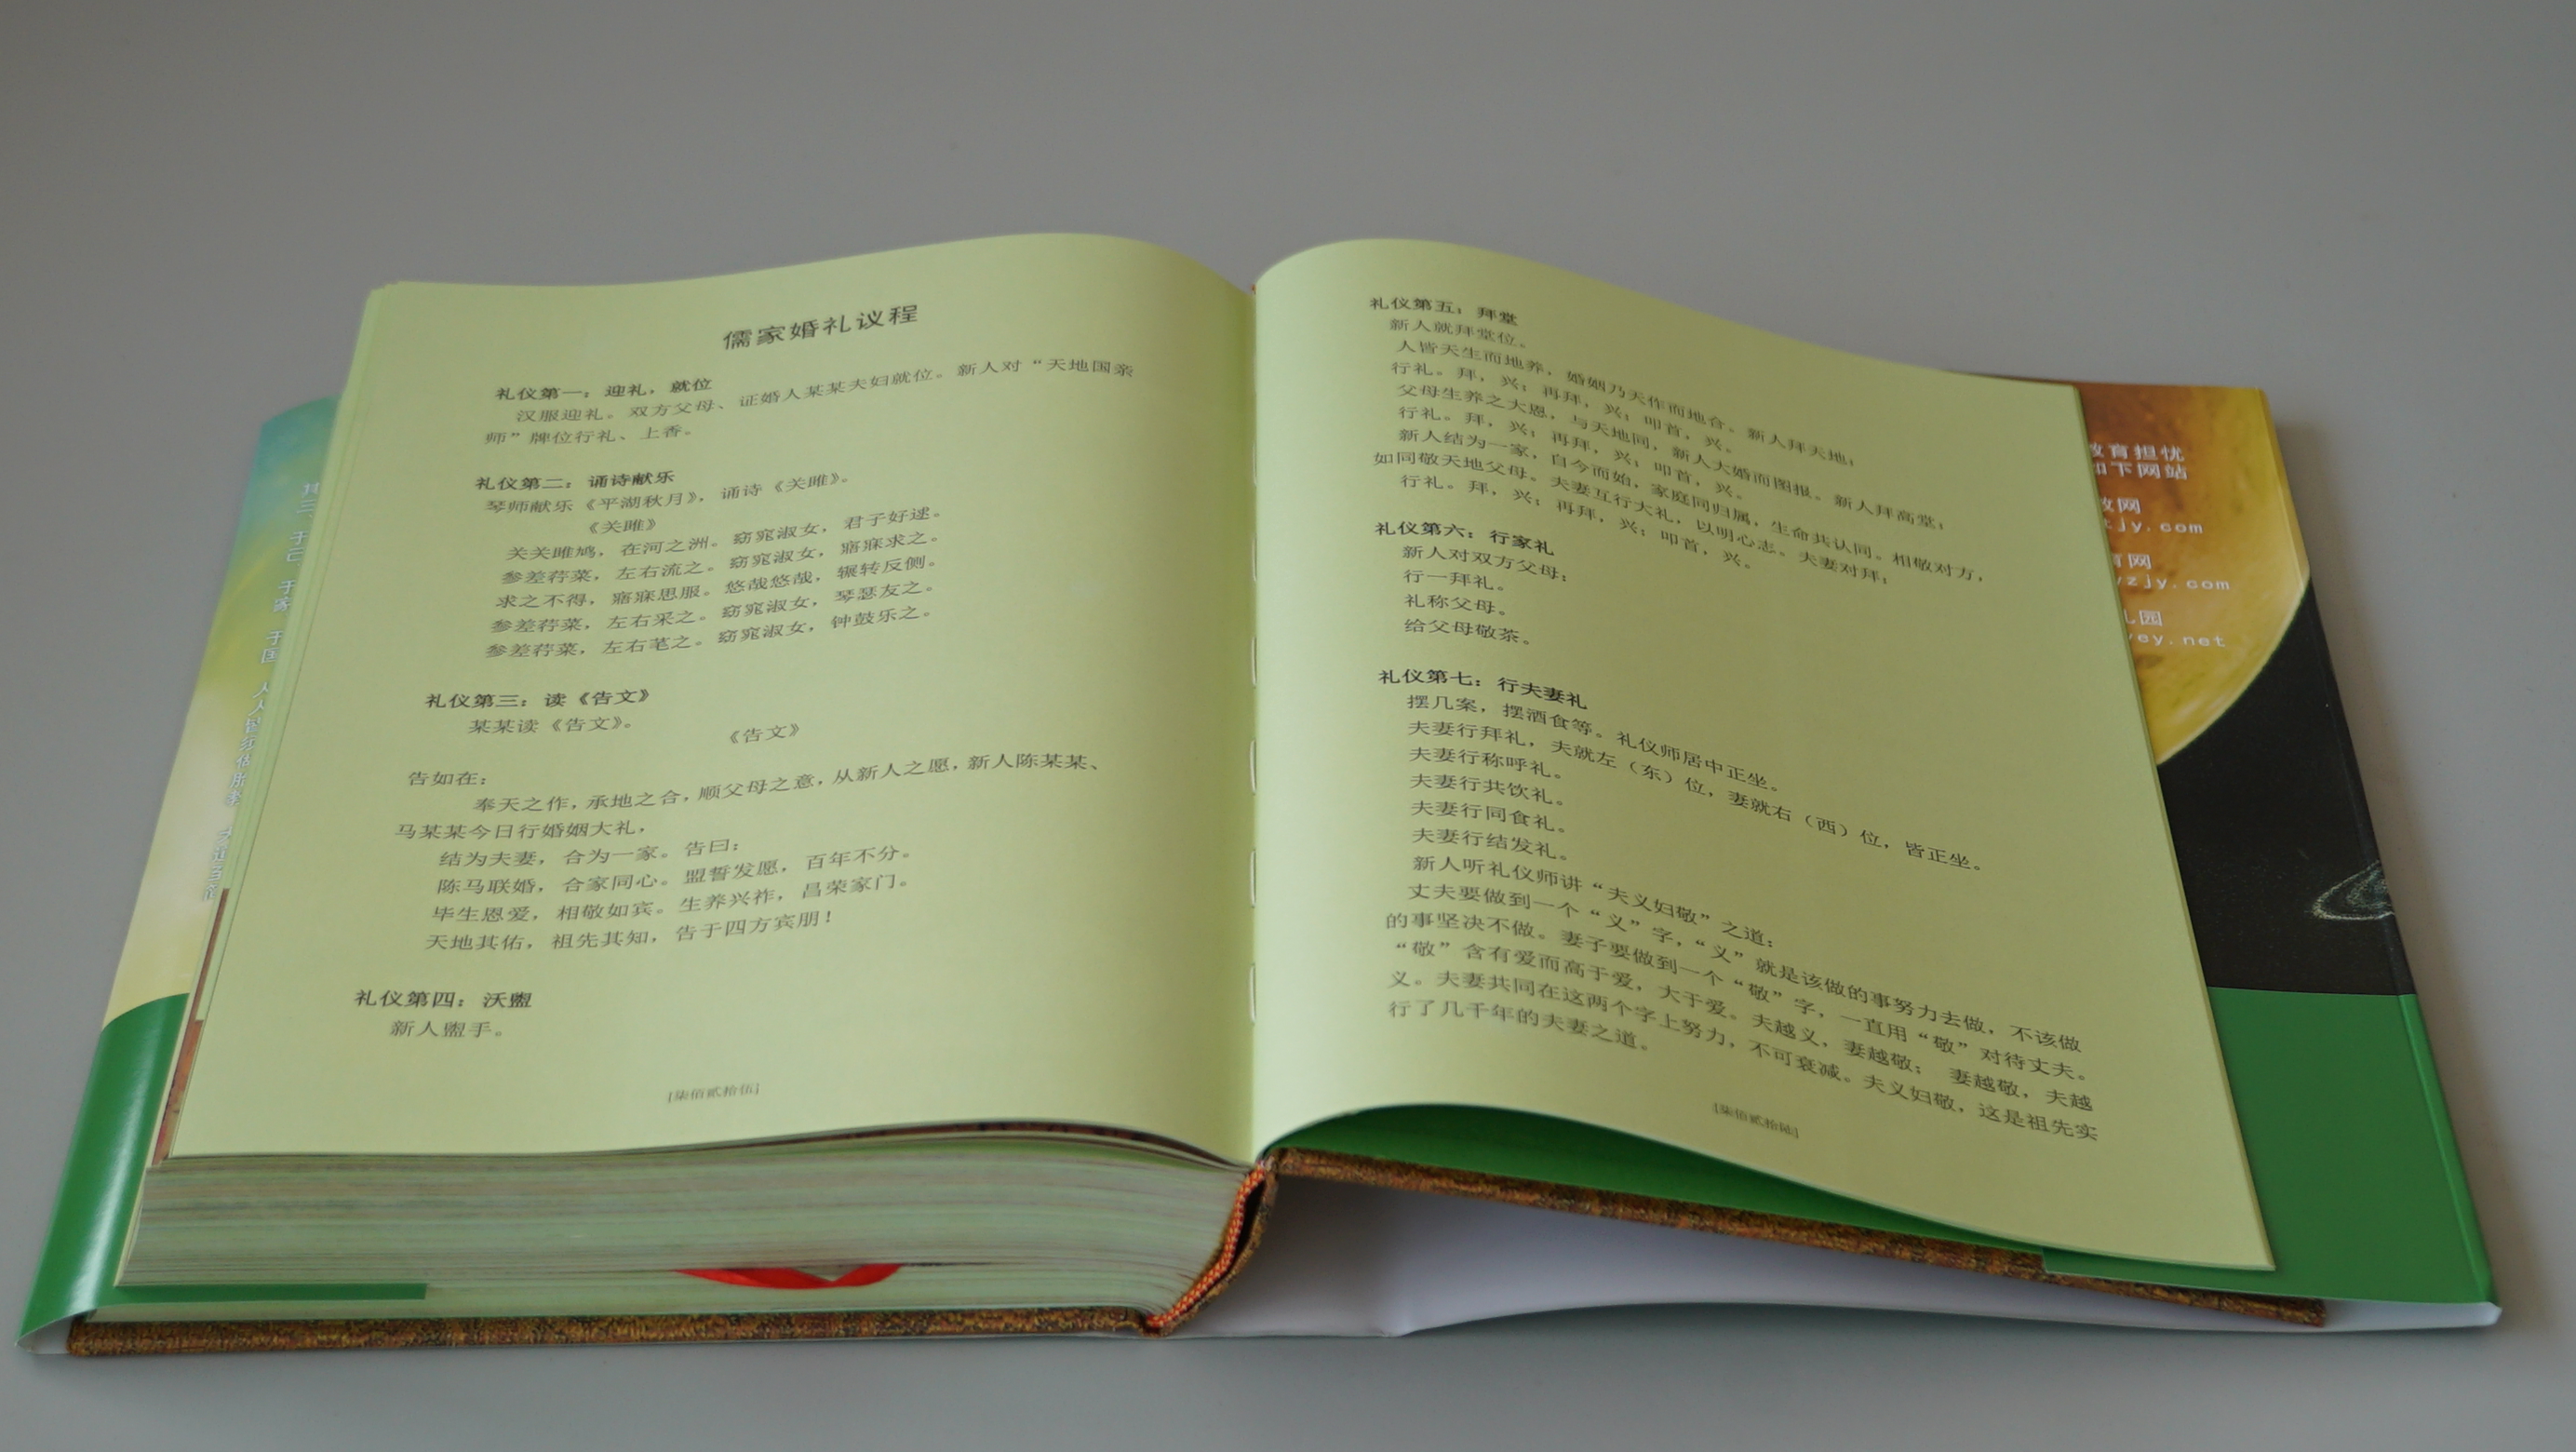 儒家婚礼议程
礼仪第一：迎礼，就位
汉服迎礼。双方父母、证婚人某某夫妇就位。新人对“天地国亲
师”牌位行礼、上香。
礼仪第二：诵诗献乐
琴师献乐《平湖秋月》，诵诗《关雎》。
《关雎》
关关雎鸠，在河之洲。窈窕淑女，君子好逑。
参差荇菜，左右流之。窈窕淑女，寤寐求之。
求之不得，寤寐思服。悠哉悠哉，辗转反侧。
参差荇菜，左右采之。窈窕淑女，琴瑟友之。
参差荇菜，左右芼之。窈窕淑女，钟鼓乐之。
礼仪第三：读《告文》
某某读《告文》。
《告文》
告如在：
奉天之作，承地之合，顺父母之意，从新人之愿，新人陈某某、
马某某今日行婚姻大礼，
结为夫妻，合为一家。告曰：
陈马联婚，合家同心。盟誓发愿，百年不分。
毕生恩爱，相敬如宾。生养兴祚，昌荣家门。
天地其佑，祖先其知，告于四方宾朋！
礼仪第四：沃盥
新人盥手。
[柒佰贰拾伍]
礼仪第五：拜堂
新人就拜堂位。
人皆天生而地养，婚姻乃天作而地合。新人拜天地：
行礼。拜，兴；再拜，兴；叩首，兴。
父母生养之大恩，与天地同，新人大婚而图报。新人拜高堂：
行礼。拜，兴；再拜，兴；叩首，兴。
新人结为一家，自今而始，家庭同归属，生命共认同。相敬对方，
如同敬天地父母。夫妻互行大礼，以明心志。夫妻对拜：
行礼。拜，兴；再拜，兴；叩首，兴。
礼仪第六：行家礼
新人对双方父母：
行一拜礼。
礼称父母。
给父母敬茶。
礼仪第七：行夫妻礼
摆几案，摆酒食等。礼仪师居中正坐。
夫妻行拜礼，夫就左（东）位，妻就右（西）位，皆正坐。
夫妻行称呼礼。
夫妻行共饮礼。
夫妻行同食礼。
夫妻行结发礼。
新人听礼仪师讲“夫义妇敬”之道：
丈夫要做到一个“义”字，“义”就是该做的事努力去做，不该做
的事坚决不做。妻子要做到一个“敬”字，一直用“敬”对待丈夫。
“敬”含有爱而高于爱，大于爱。夫越义，妻越敬； 妻越敬，夫越
义。夫妻共同在这两个字上努力，不可衰减。夫义妇敬，这是祖先实
行了几千年的夫妻之道。
[柒佰贰拾陆]
教育担忧
如下网站
教网
jy.com
育网
zjy.com
儿园
ey.net